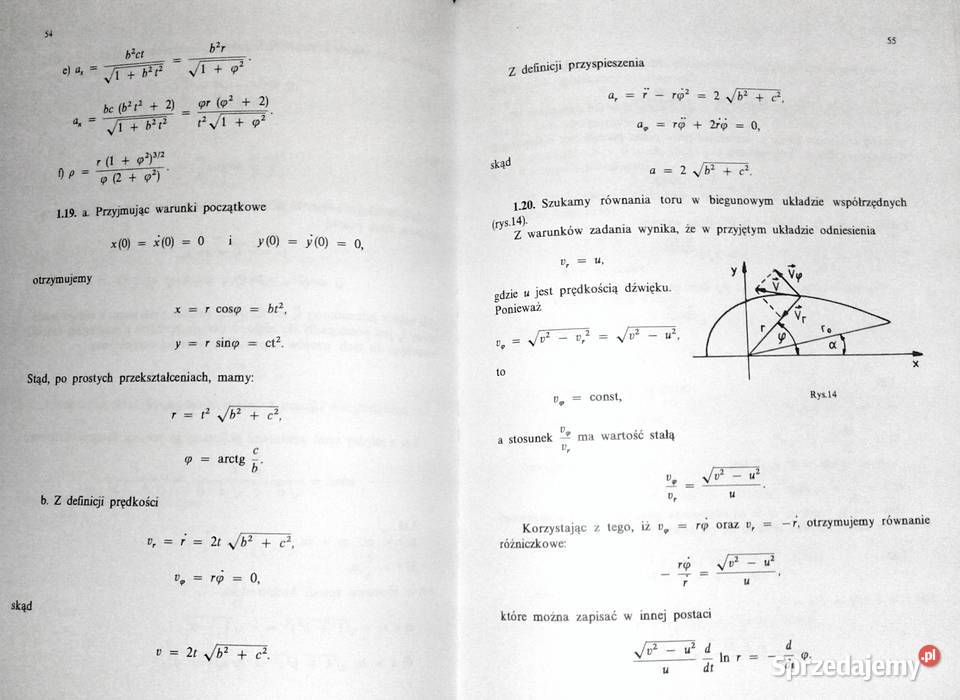 54
e) a_s = b²ct / √(1 + b²t²) = b²r / √(1 + φ²).
a_n = bc (b²t² + 2) / √(1 + b²t²) = φr (φ² + 2) / t²√(1 + φ²).
f) ρ = r (1 + φ²)^(3/2) / φ (2 + φ²).
1.19. a. Przyjmując warunki początkowe
x(0) = ẋ(0) = 0 i y(0) = ẏ(0) = 0,
otrzymujemy
x = r cosφ = bt²,
y = r sinφ = ct².
Stąd, po prostych przekształceniach, mamy:
r = t² √(b² + c²),
φ = arctg c/b.
b. Z definicji prędkości
v_r = ṙ = 2t √(b² + c²),
v_φ = rφ̇ = 0,
skąd
v = 2t √(b² + c²).
55
Z definicji przyspieszenia
a_r = r̈ − rφ̇² = 2 √(b² + c²),
a_φ = rφ̈ + 2ṙφ̇ = 0,
skąd
a = 2 √(b² + c²).
1.20. Szukamy równania toru w biegunowym układzie współrzędnych
(rys.14).
Z warunków zadania wynika, że w przyjętym układzie odniesienia
v_r = u,
gdzie u jest prędkością dźwięku.
Ponieważ
v_φ = √(v² − v_r²) = √(v² − u²),
to
v_φ = const,
y
V⃗
V⃗φ
V⃗r
r
φ
r₀
α
x
Rys.14
a stosunek v_φ/v_r ma wartość stałą
v_φ/v_r = √(v² − u²) / u.
Korzystając z tego, iż v_φ = rφ̇ oraz v_r = −ṙ, otrzymujemy równanie
różniczkowe:
− rφ̇/ṙ = √(v² − u²) / u,
które można zapisać w innej postaci
√(v² − u²)/u d/dt ln r = − d/dt φ.
Sprzedajemy.pl